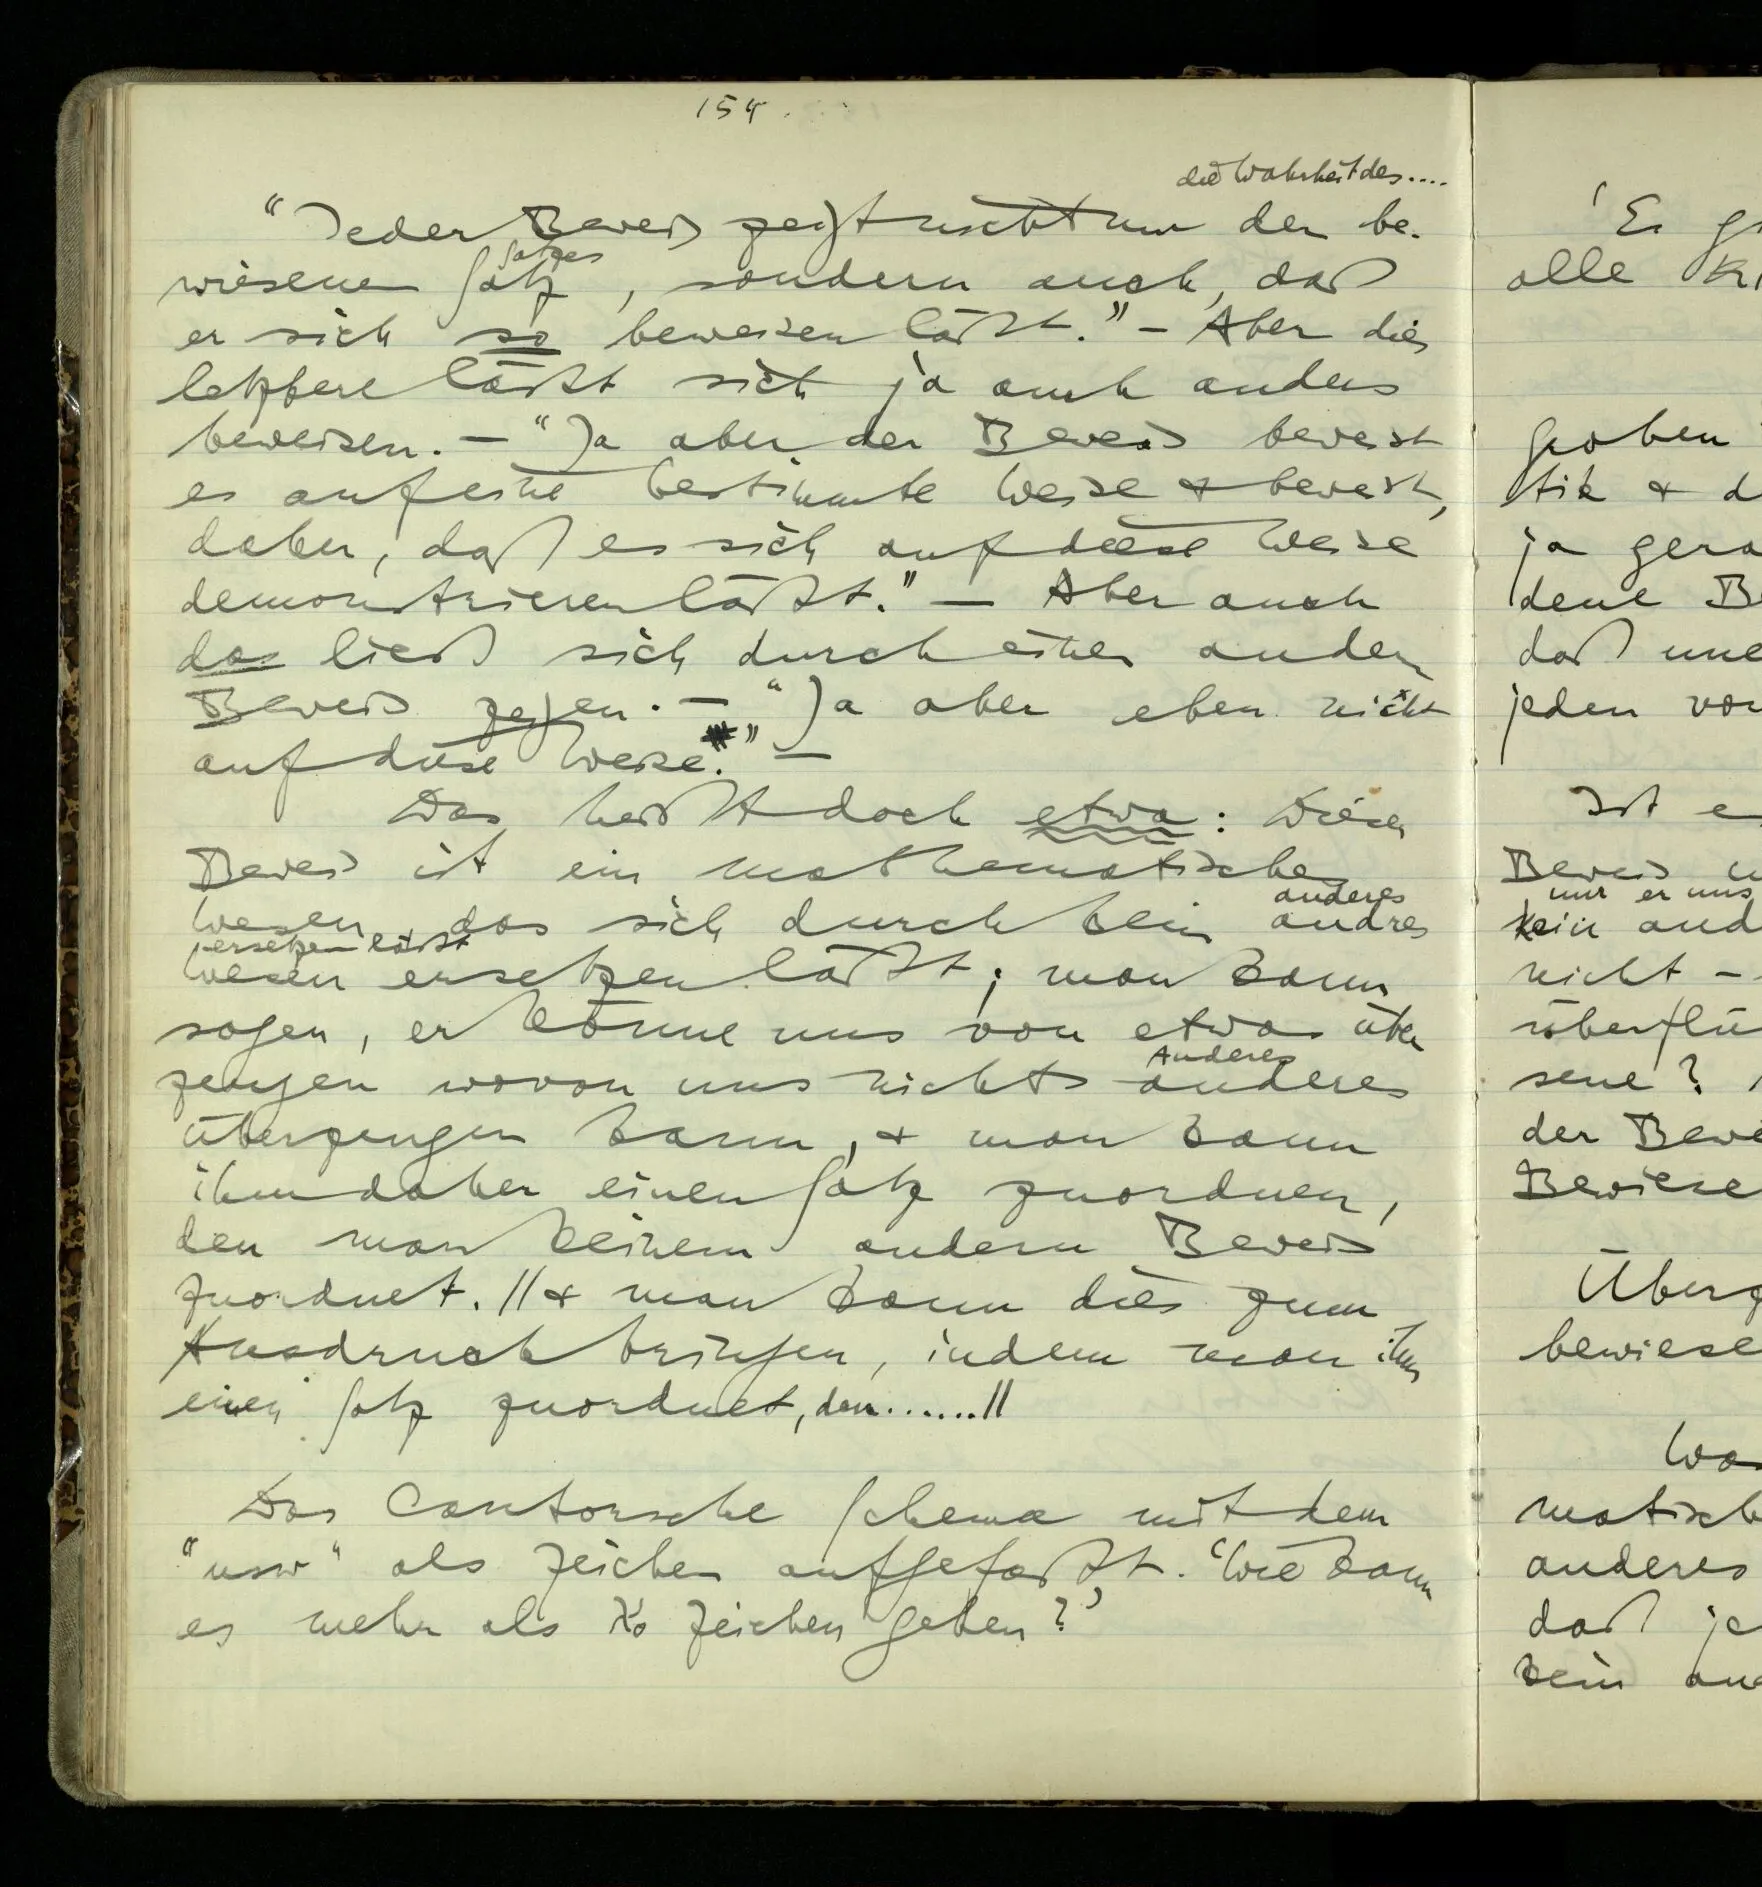 154
die Wahrheit des....
"Jeder Beweis zeigt nicht nur den be-
Satzes
wiesenen Satz, sondern auch, daß
er sich so beweisen läßt." – Aber dies
letztere läßt sich ja auch anders
beweisen. – "Ja aber der Beweis beweist
es auf eine bestimmte Weise & beweist,
daher, daß es sich auf diese Weise
demonstrieren läßt." – Aber auch
das ließ sich durch einen andern
Beweis zeigen. – "Ja aber eben nicht
auf diese Weise." –
Das heißt doch etwa: Dieser
Beweis ist ein mathematisches
anderes
Wesen, das sich durch kein andres
ersetzen läßt
Wesen ersetzen läßt; man kann
sagen, er könne uns von etwas über
Anderes
zeugen wovon uns nichts anderes
überzeugen kann, & man kann
ihm daher einen Satz zuordnen,
den man keinem andern Beweis
zuordnet. // & man kann dies zum
Ausdruck bringen, indem man ihm
einen Satz zuordnet, den.......//
Das Cantorsche Schema mit dem
"usw" als Zeichen aufgefaßt. 'Wie kann
es mehr als ℵ₀ Zeichen geben?'
'Es
alle
groben
tik & d
ja gera
dene B
daß
jeden vor
Ist e
Beweis
nur er uns
kein and
nicht –
überflü
sene?
der Bewe
Bewiese
Überz
bewiese
Wa
matisch
anderes
daß je
kein and